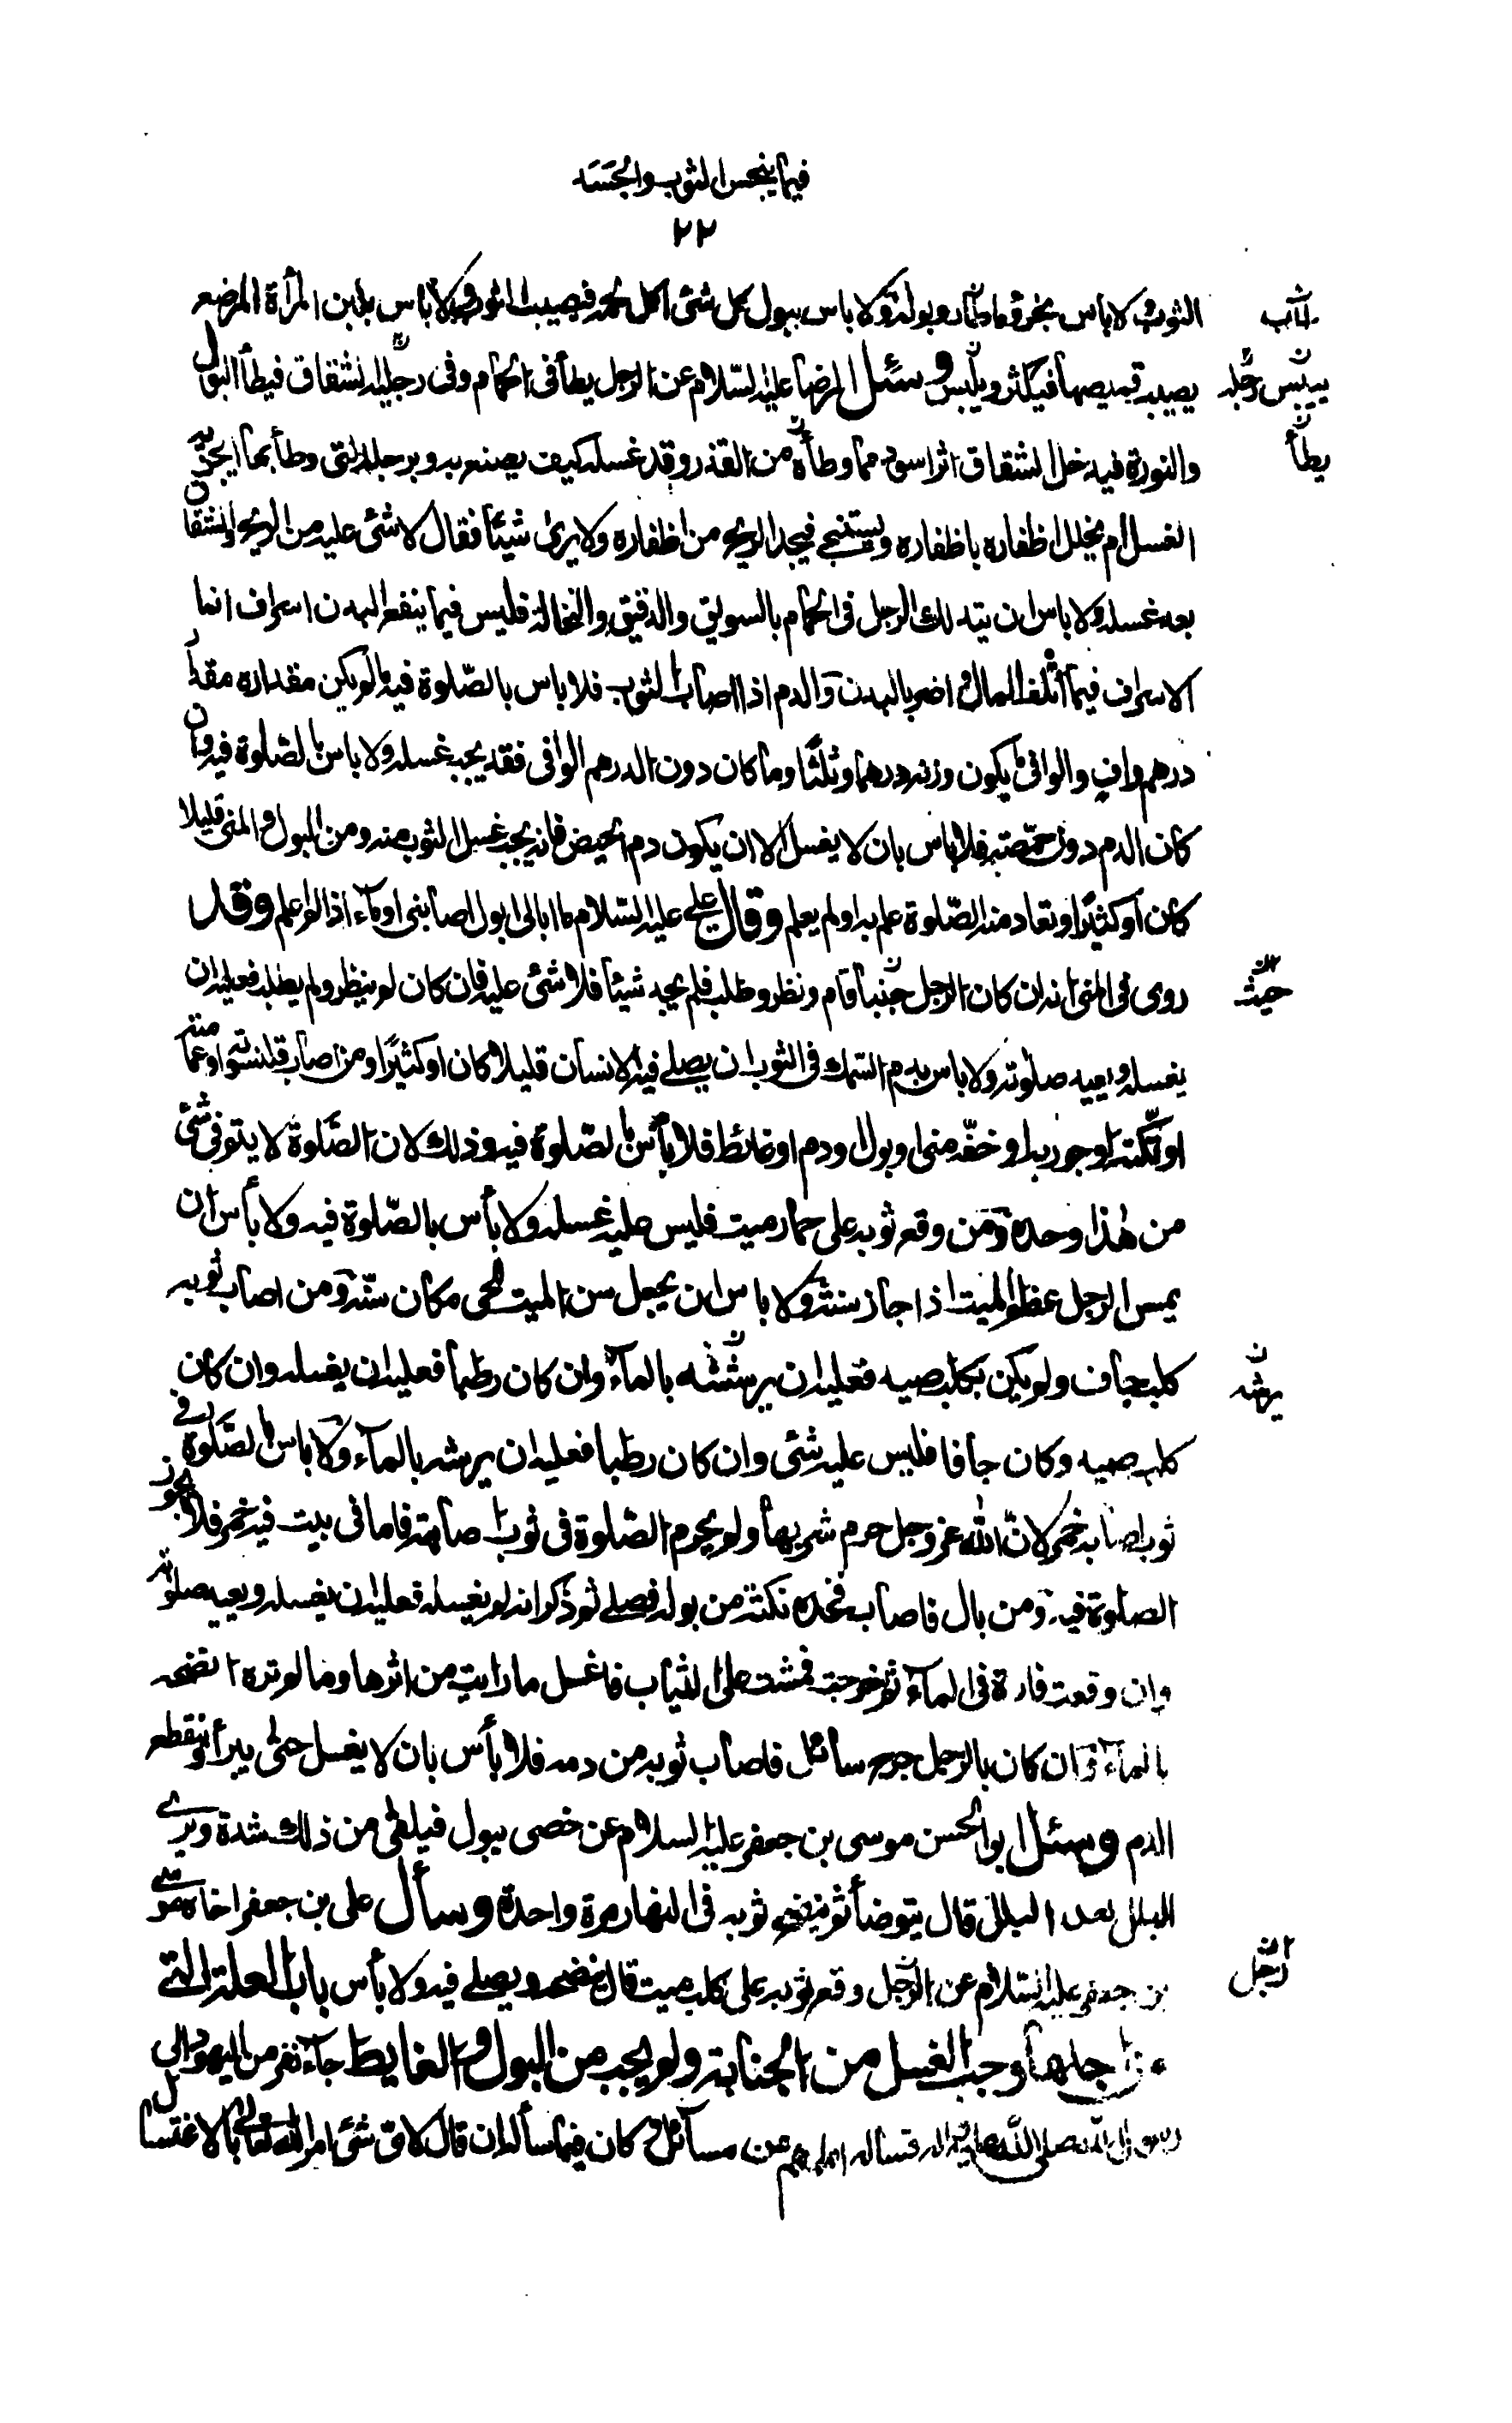 فيما ينجس الثوب والجسد
٢٢
الثوب ولا باس بخرؤ ما طار وبوله ولا باس ببول كل شئ اكل لحمه فيصيب الثوب ولا باس بلبن المرأة المرضعة
يصيب قميصها فيكثر وييبس وسئل الرضا عليه السلام عن الرجل يطأ فى الحمام وفى رجليه الشقاق فيطأ البول
والنورة فيدخل الشقاق اثر اسود مما وطأه من القذر وقد غسله كيف يصنع به وبرجله التى وطأ بها ايجزيه
الغسل ام يخلل اظفاره باظفاره ويستنجى فيجد الريح من اظفاره ولا يرى شيئا فقال لا شئ عليه من الريح والشقاق
بعد غسله ولا باس ان يتدلك الرجل فى الحمام بالسويق والدقيق والنخالة فليس فيما ينفع البدن اسراف انما
الاسراف فيما اتلف المال واضر بالبدن والدم اذا اصاب الثوب فلا باس بالصلوة فيه ما لم يكن مقداره مقدار
درهم واف والوافى ما يكون وزنه درهما وثلثا وما كان دون الدرهم الوافى فقد يجب غسله ولا باس بالصلوة فيه وان
كان الدم دون حمصة فلا باس بان لا يغسل الا ان يكون دم الحيض فانه يجب غسل الثوب منه ومن البول والمنى قليلا
كان او كثيرا وتعاد منه الصلوة علم به او لم يعلم وقال على عليه السلام ما ابالى ابول اصابنى او ماء اذا لم اعلم وقد
روى فى المنى انه ان كان الرجل جنبا قام ونظر وطلب فلم يجد شيئا فلا شئ عليه فان كان لم ينظر ولم يطلب فعليه ان
يغسله ويعيد صلوته ولا باس بدم السمك فى الثوب ان يصلى فيه الانسان قليلا كان او كثيرا ومن اصاب قلنسوته او عمامته
او تكته او جوربه او خفه منى او بول او دم او غائط فلا بأس بالصلوة فيه وذلك لان الصلوة لا يتم فى شئ
من هذا وحده ومن وقع ثوبه على حمار ميت فليس عليه غسله ولا بأس بالصلوة فيه ولا بأس ان
يمس الرجل عظم الميت اذا جاز سنة ولا باس ان يجعل سن الميت للحى مكان سنه ومن اصاب ثوبه
كلب جاف ولم يكن بكلب صيد فعليه ان يرشه بالماء وان كان رطبا فعليه ان يغسله وان كان
كلب صيد وكان جافا فليس عليه شئ وان كان رطبا فعليه ان يرشه بالماء ولا باس بالصلوة فى
ثوب اصابه خمر لان الله عز وجل حرم شربها ولم يحرم الصلوة فى ثوب اصابته فاما فى بيت فيه خمر فلا يجوز
الصلوة فيه ومن بال فاصاب فخذه نكتة من بوله فصلى ثم ذكر انه لم يغسله فعليه ان يغسله ويعيد صلوته
وان وقعت فارة فى الماء ثم خرجت فمشت على الثياب فاغسل ما رايت من اثرها وما لم تره انضحه
بالماء وان كان بالرجل جرح سائل فاصاب ثوبه من دمه فلا بأس بان لا يغسل حتى يبرأ او ينقطع
الدم وسئل ابو الحسن موسى بن جعفر عليه السلام عن خصى يبول فيلقى من ذلك شدة ويرى
البلل بعد البلل قال يتوضأ ثم ينضح ثوبه فى النهار مرة واحدة وسأل على بن جعفر اخاه موسى
بن جعفر عليه السلام عن الرجل وقع ثوبه على كلب ميت قال ينضحه ويصلى فيه ولا بأس باب العلة التى
من اجلها وجب الغسل من الجنابة ولم يجب من البول والغايط جاء نفر من اليهود الى
رسول الله صلى الله عليه واله فسأله اعلمهم عن مسائل وكان فيما سأله ان قال لاى شئ امر الله تعالى بالاغتسال
ييبس رجله
يطأ
حيث
يرشه
الرجل